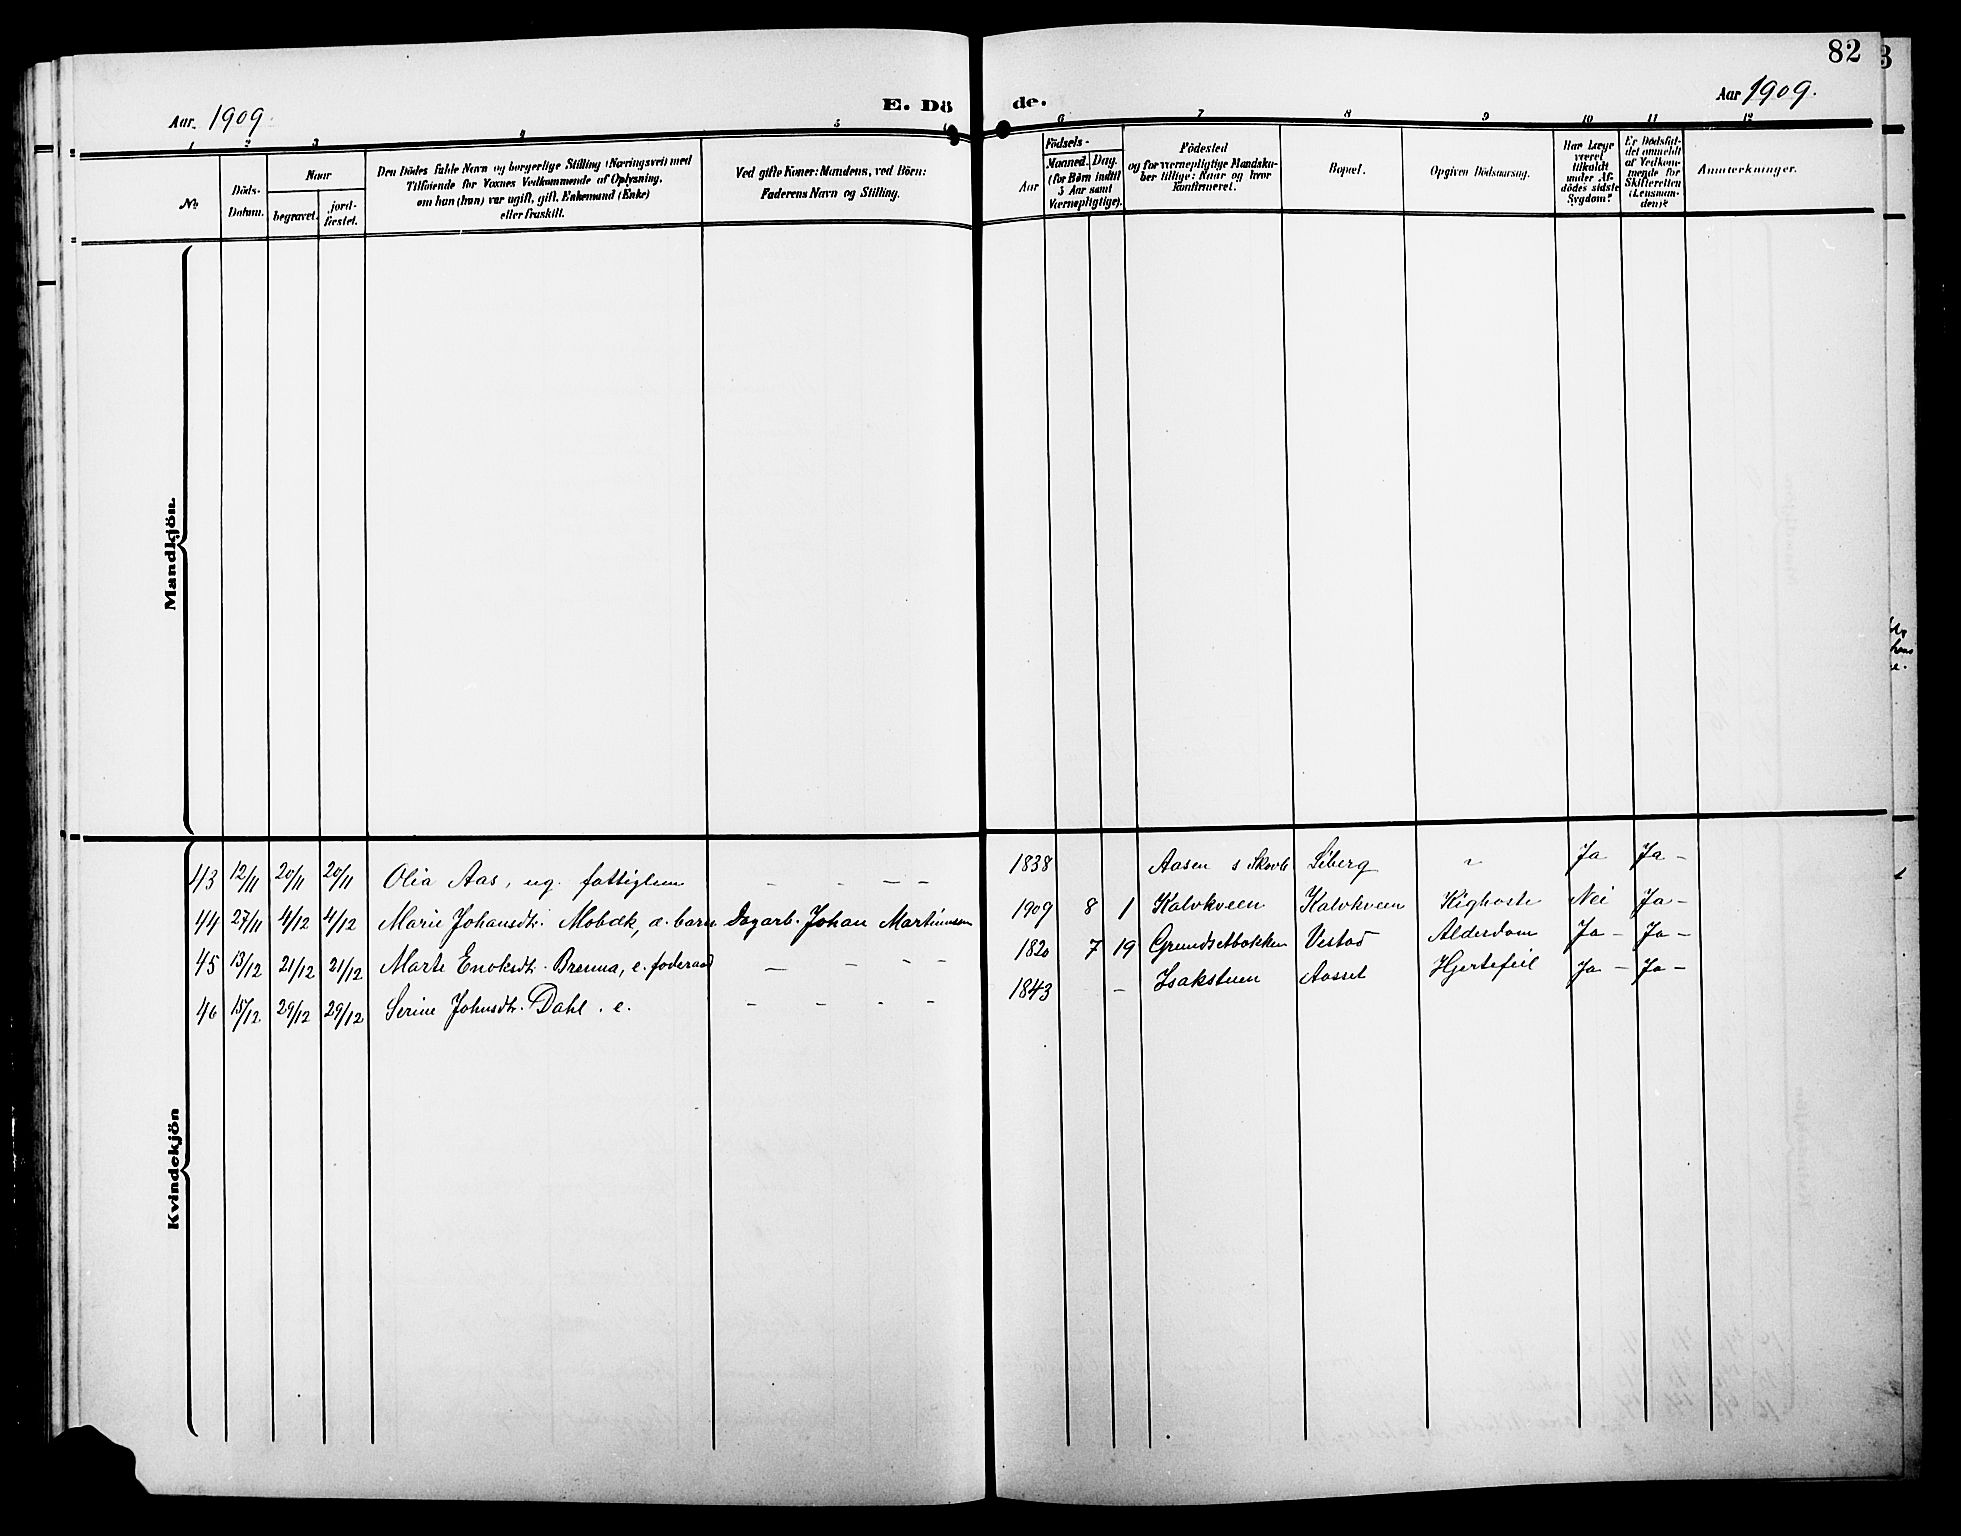 82
Aar. 1909.
E. Dö
de.
Aar 1909.
1 2 3 4 5 6
6 7 8 9 10 11 12
No
Döds-
Datum.
Naar
begravet.
jord-
fæstet.
Den Dödes fulde Navn og borgerlige Stilling (Næringsvei) med
Tilföiende for Voxnes Vedkommende af Oplysning,
om han (hun) var ugift, gift, Enkemand (Enke)
eller fraskilt.
Ved gifte Koner: Mandens, ved Börn:
Faderens Navn og Stilling.
Födsels-
Aar
Maaned. Dag.
(for Børn indtil
5 Aar samt
Værnepligtige).
Födested
og for værnepligtige Mandsku-
ber tillige: Naar og hvor
Konfirmeret.
Bopæl.
Opgiven Dödsaarsag.
Har Læge
været
tilkaldt
under Af-
dödes sidste
Sygdom?
Er Dødsfal-
det anmeldt
af Vedkom-
mende for
Skifteretten
(Lensman-
den)?
Anmærkninger.
Mandkjön.
Kvindekjön
43 12/11 20/11 20/11 Olia Aas, ug. fattiglem – – – – 1838 Aasen s Skovb. Siberg " Ja Ja –
44 27/11 4/12 4/12 Marie Johansdtr. Mobæk, æ. barn Dagarb. Johan Martinussen 1909 8 1 Kalvkveen Kalvkveen Kighoste Nei Ja –
45 13/12 21/12 21/12 Marte Enoksdtr. Brenna, e. føderaad – – – – 1820 7 19 Grundsetbakken Vestad Alderdom Ja – Ja –
46 15/12 29/12 29/12 Serine Johnsdtr. Dahl. e. – – – – 1843 – Isakstuen Aasset Hjertefeil Ja – Ja –